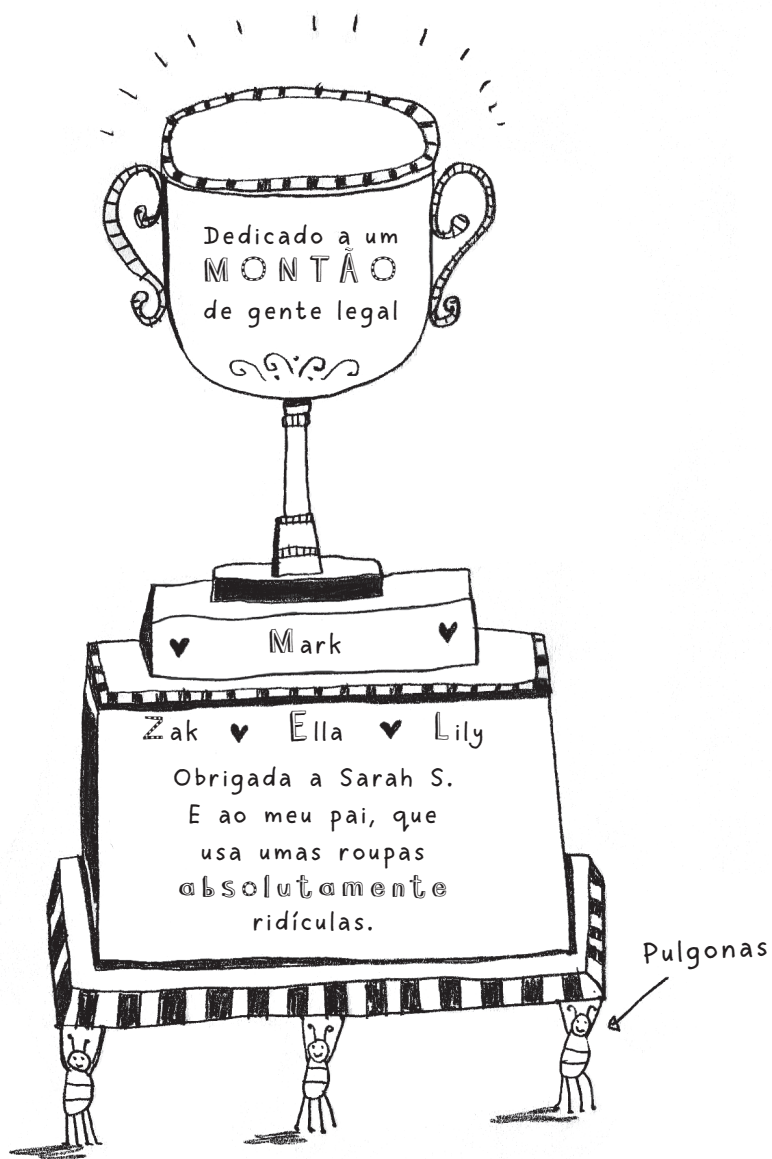 Dedicado a um
MONTÃO
de gente legal
Mark
Zak Ella Lily
Obrigada a Sarah S.
E ao meu pai, que
usa umas roupas
absolutamente
ridículas.
Pulgonas